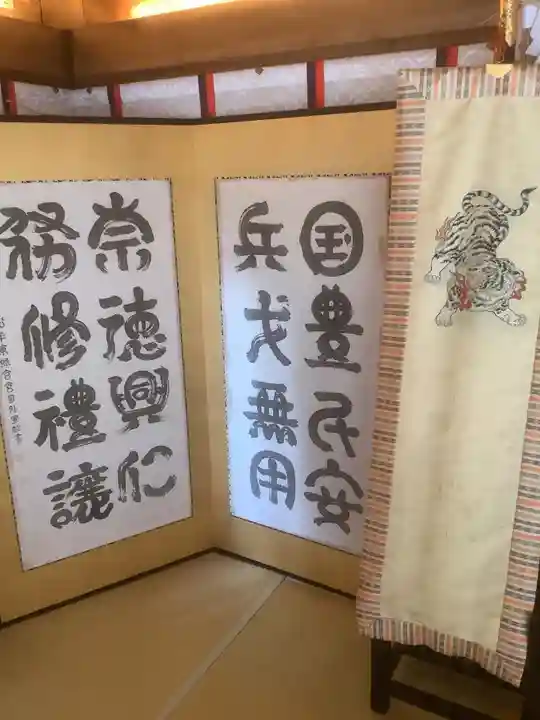 国豊民安
兵戈無用
崇德興仁
務修禮讓